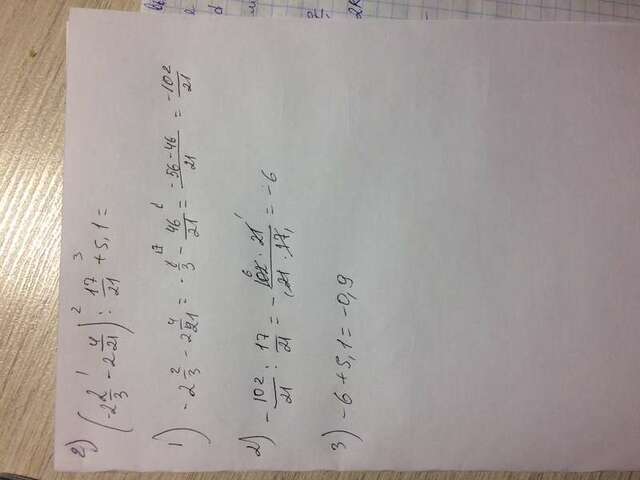 2) (-2 2/3 - 2 4/21) : 17/21 + 5,1 =
1) -2 2/3 - 2 4/21 = -8/3 - 46/21 = -56-46/21 = -102/21
2) -102/21 : 17/21 = -102·21/21·17 = -6
3) -6 + 5,1 = -0,9